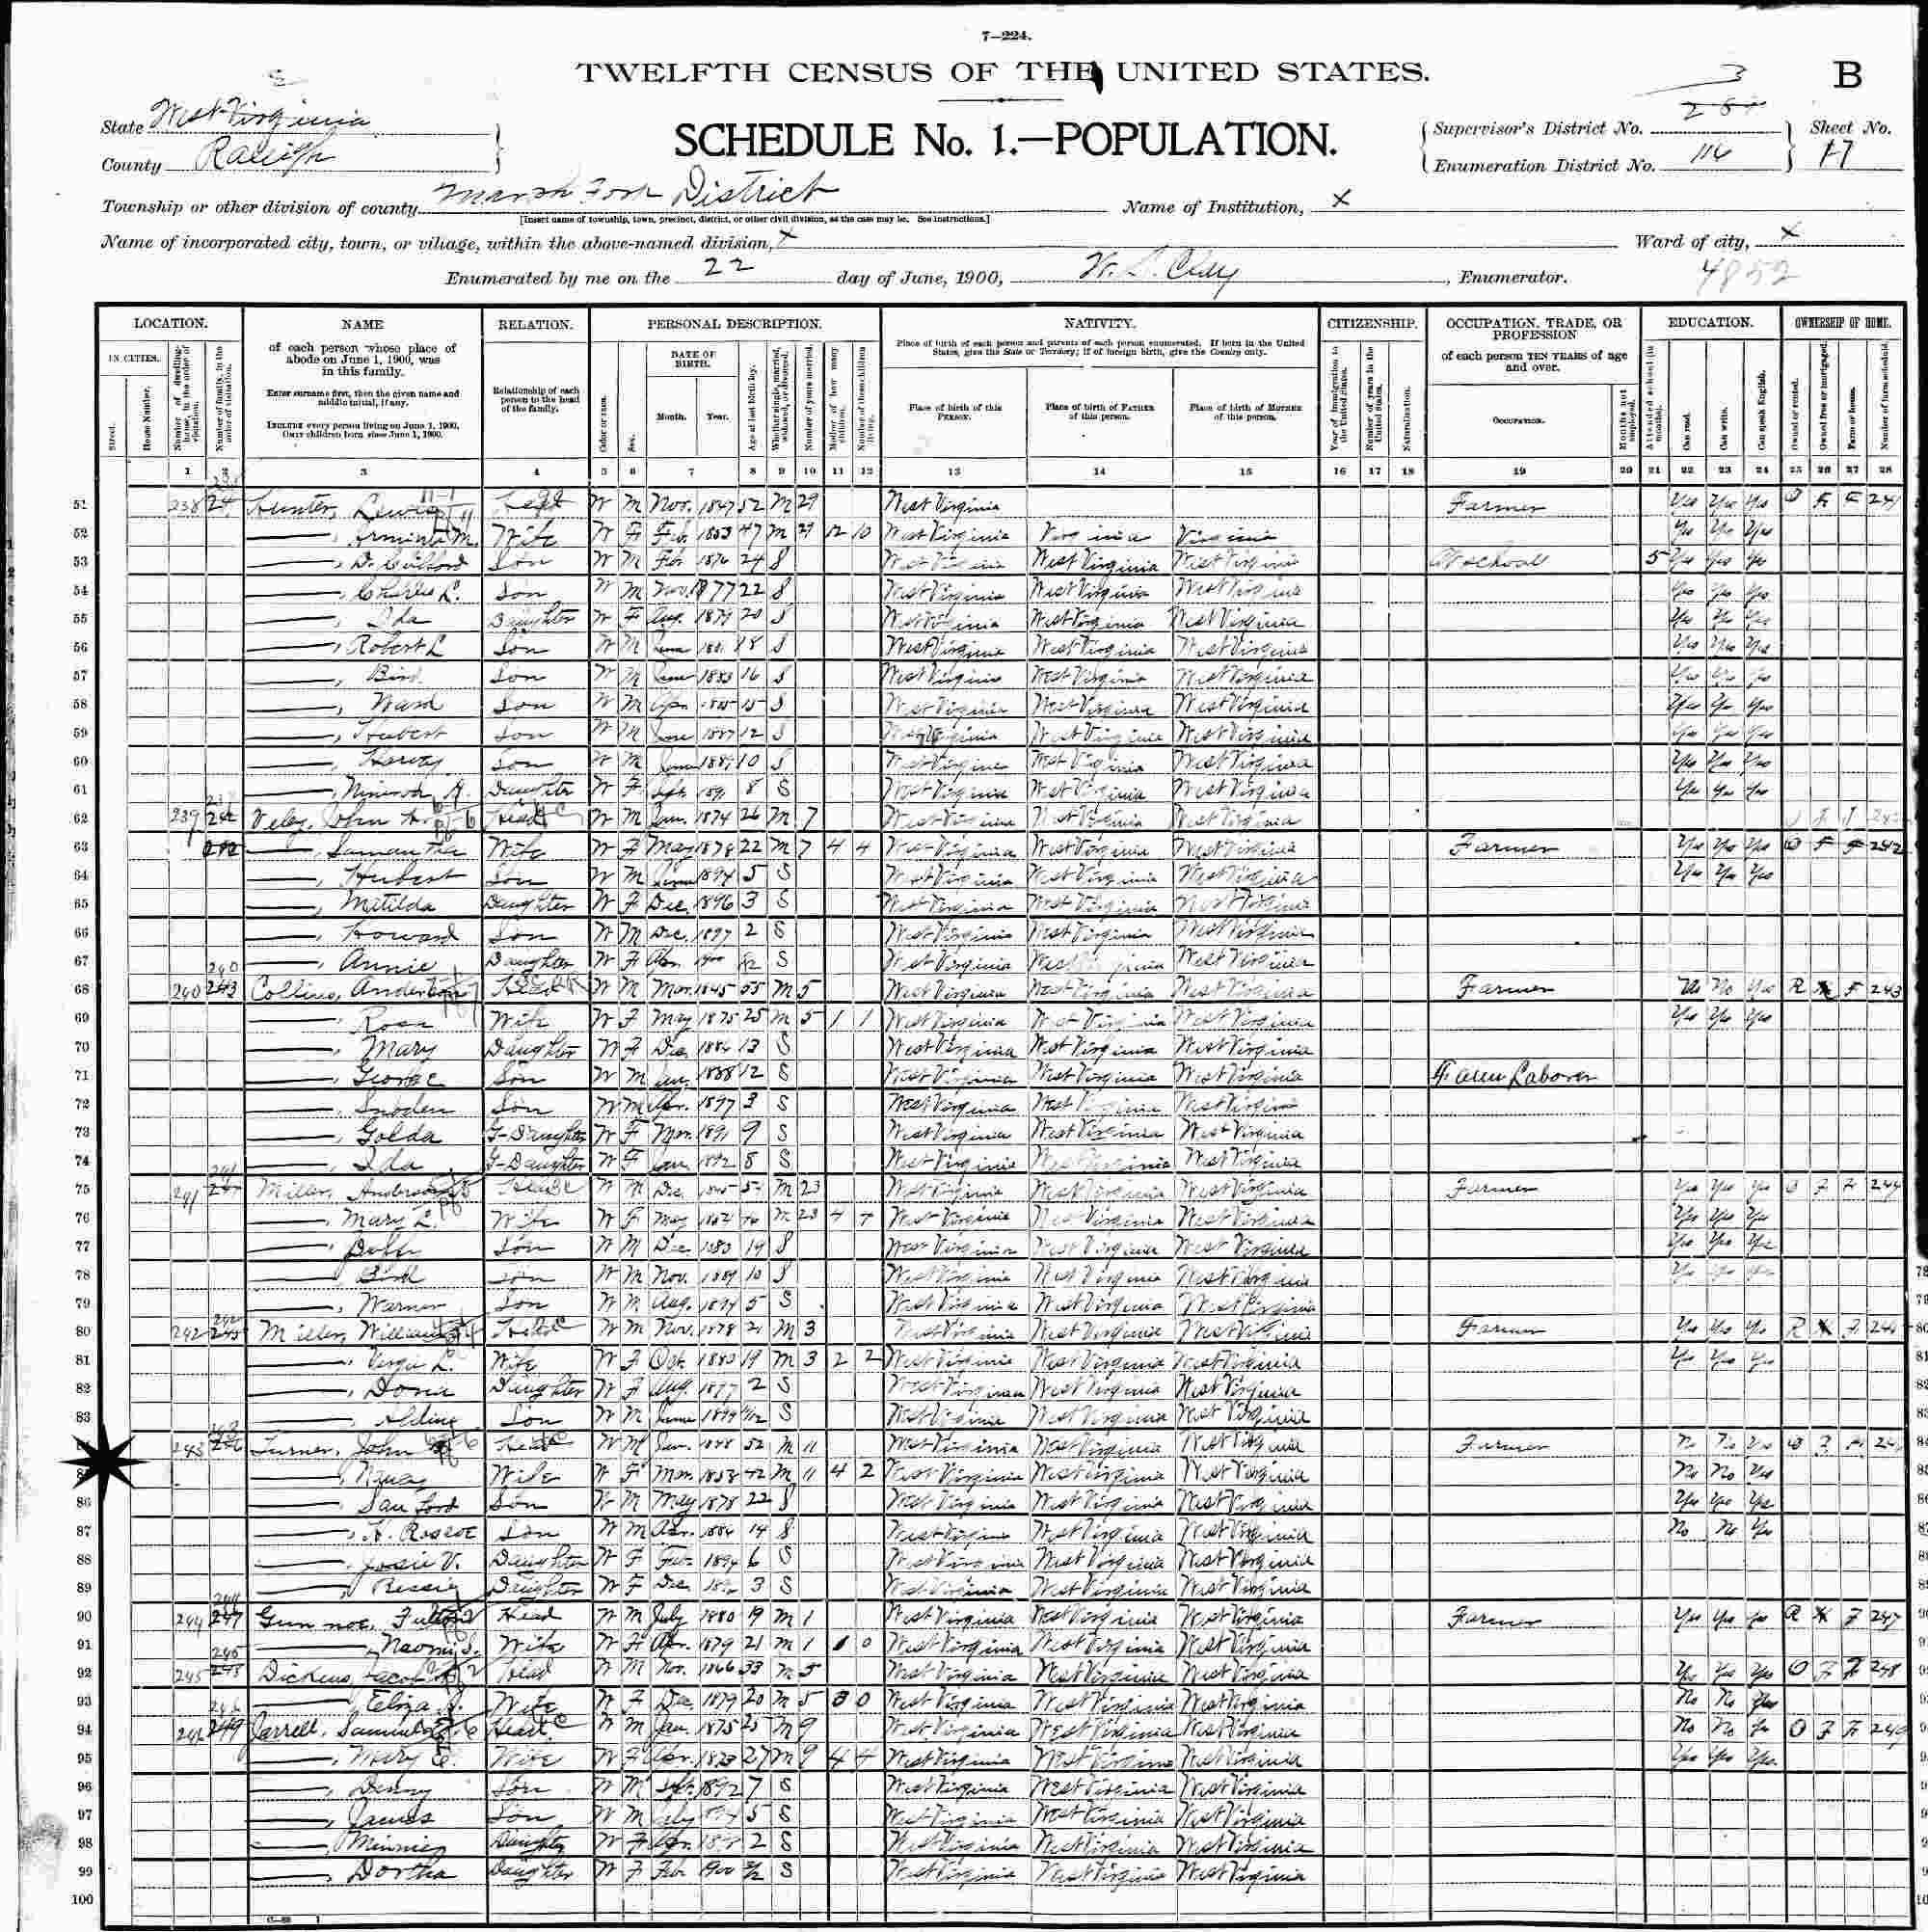 7—224.
TWELFTH CENSUS OF THE UNITED STATES.
B
State West Virginia
County Raleigh
SCHEDULE No. 1.—POPULATION.
Supervisor's District No. 3
Enumeration District No. 116
Sheet No.
17
Township or other division of county Marsh Fork District
[Insert name of township, town, precinct, district, or other civil division, as the case may be. See instructions.]
Name of Institution, X
Name of incorporated city, town, or village, within the above-named division, X
Ward of city, X
Enumerated by me on the 22 day of June, 1900, , Enumerator.
4852
LOCATION. NAME RELATION. PERSONAL DESCRIPTION. NATIVITY. CITIZENSHIP. OCCUPATION, TRADE, OR PROFESSION EDUCATION. OWNERSHIP OF HOME.
IN CITIES. of each person whose place of abode on June 1, 1900, was in this family.
Enter surname first, then the given name and middle initial, if any.
INCLUDE every person living on June 1, 1900. OMIT children born since June 1, 1900.
Relationship of each person to the head of the family.
DATE OF BIRTH. Month. Year.
Place of birth of each person and parents of each person enumerated. If born in the United States, give the State or Territory; if of foreign birth, give the Country only.
Place of birth of this PERSON. Place of birth of FATHER of this person. Place of birth of MOTHER of this person.
of each person TEN YEARS of age and over.
OCCUPATION.
1 2 3 4 5 6 7 8 9 10 11 12 13 14 15 16 17 18 19 20 21 22 23 24 25 26 27 28
51 238 Hunter, Lewis W M Nov. 1847 52 M 29 West Virginia Farmer Yes Yes Yes O F F 241
52 Arminta M. Wife W F Feb 1853 47 M 29 12 10 West Virginia Virginia Virginia Yes Yes Yes
53 Son W M Feb 1876 24 S West Virginia West Virginia West Virginia At school 5 Yes Yes Yes
54 Charles L. Son W M Nov. 1877 22 S West Virginia West Virginia West Virginia Yes Yes Yes
55 Ida Daughter W F Aug. 1879 20 S West Virginia West Virginia West Virginia Yes Yes Yes
56 Robert L Son W M 18 S West Virginia West Virginia West Virginia Yes Yes Yes
57 Bird Son W M 1883 16 S West Virginia West Virginia West Virginia Yes Yes Yes
58 Ward Son W M Apr 1885 15 S West Virginia West Virginia West Virginia Yes Yes Yes
59 Hubert Son W M June 1887 12 S West Virginia West Virginia West Virginia Yes Yes Yes
60 Harvey Son W M June 1889 10 S West Virginia West Virginia West Virginia Yes Yes Yes
61 Daughter W F Sept. 1891 8 S West Virginia West Virginia West Virginia Yes Yes Yes
62 239 John Head W M Jan. 1874 26 M 7 West Virginia West Virginia West Virginia
63 Samantha Wife W F May 1878 22 M 7 4 4 West Virginia West Virginia West Virginia Farmer Yes Yes Yes O F F 242
64 Hubert Son W M June 1894 5 S West Virginia West Virginia West Virginia Yes Yes Yes
65 Matilda Daughter W F Dec. 1896 3 S West Virginia West Virginia West Virginia
66 Howard Son W M Dec. 1897 2 S West Virginia West Virginia West Virginia
67 Annie Daughter W F Apr. 1900 S West Virginia West Virginia West Virginia
68 240 243 Collins, Anderson Head W M Mar. 1845 55 M 5 West Virginia West Virginia West Virginia Farmer No No Yes R F 243
69 Rosa Wife W F May 1875 25 M 5 1 1 West Virginia West Virginia West Virginia Yes Yes Yes
70 Mary Daughter W F Dec 13 S West Virginia West Virginia West Virginia
71 George Son W M Jan. 1888 12 S West Virginia West Virginia West Virginia Farm Laborer
72 Snoden Son W M Apr. 1897 3 S West Virginia West Virginia West Virginia
73 Golda G-Daughter W F Mar. 1891 9 S West Virginia West Virginia West Virginia
74 Ida G-Daughter W F Jan. 1892 8 S West Virginia West Virginia West Virginia
75 241 Miller, Anderson Head W M Dec. 1845 54 M 23 West Virginia West Virginia West Virginia Farmer Yes Yes Yes O F F 244
76 Mary L. Wife W F May M 23 4 4 West Virginia West Virginia West Virginia Yes Yes Yes
77 John Son W M Dec 1880 19 S West Virginia West Virginia West Virginia Yes Yes Yes
78 Bird Son W M Nov. 1889 10 S West Virginia West Virginia West Virginia Yes Yes Yes
79 Warner Son W M Aug. 1894 5 S West Virginia West Virginia West Virginia
80 242 245 Miller, William Head W M Nov. 1878 21 M 3 West Virginia West Virginia West Virginia Farmer Yes Yes Yes R F
81 Verga L. Wife W F Oct. 1880 19 M 3 2 2 West Virginia West Virginia West Virginia Yes Yes Yes
82 Dona Daughter W F Aug. 1897 2 S West Virginia West Virginia West Virginia
83 Aldine Son W M June 1899 11/12 S West Virginia West Virginia West Virginia
243 246 Turner, John Head W M Jan. 1848 52 M 11 West Virginia West Virginia West Virginia Farmer No No Yes O F
Nancy Wife W F Mar. 1858 42 M 11 4 2 West Virginia West Virginia West Virginia No No Yes
86 Sanford Son W M May 1878 22 S West Virginia West Virginia West Virginia Yes Yes Yes
87 H. Roscoe Son W M Apr. 14 S West Virginia West Virginia West Virginia No No Yes
88 Josie V. Daughter W F Feb. 1894 6 S West Virginia West Virginia West Virginia
89 Bessie Daughter W F Dec 3 S West Virginia West Virginia West Virginia
90 244 247 Gunnoe, Fulton Head W M July 1880 19 M 1 West Virginia West Virginia West Virginia Farmer Yes Yes Yes R F 247
91 Naomi S. Wife W F Apr. 1879 21 M 1 0 0 West Virginia West Virginia West Virginia
92 245 248 Dickens, Jacob Head W M Nov. 1866 33 M 5 West Virginia West Virginia West Virginia Yes Yes Yes O F F 248
93 Eliza J. Wife W F Dec. 1879 20 M 5 0 0 West Virginia West Virginia West Virginia No No Yes
94 246 249 Jarrell, Samuel Head W M Jan. 1875 25 M 9 West Virginia West Virginia West Virginia No No Yes O F F 249
95 Mary E. Wife W F Apr. 1873 27 M 9 4 4 West Virginia West Virginia West Virginia Yes Yes Yes
96 Denny Son W M 1892 7 S West Virginia West Virginia West Virginia
97 James Son W M July 5 S West Virginia West Virginia West Virginia
98 Minnie Daughter W F Apr. 2 S West Virginia West Virginia West Virginia
99 Dortha Daughter W F Feb 1900 S West Virginia West Virginia West Virginia
100